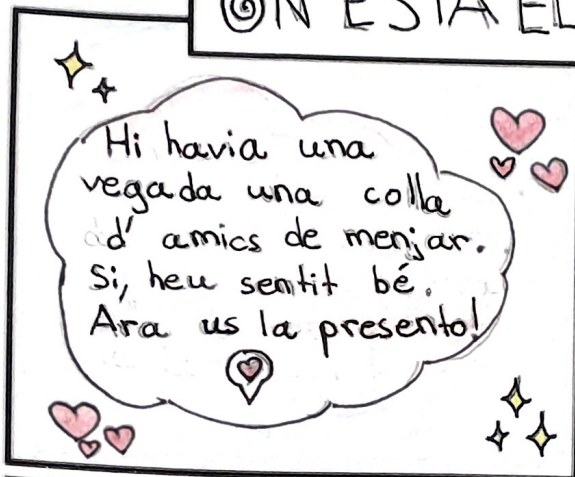 ON ESTÀ EL
Hi havia una
vegada una colla
d'amics de menjar.
Si, heu sentit bé.
Ara us la presento!